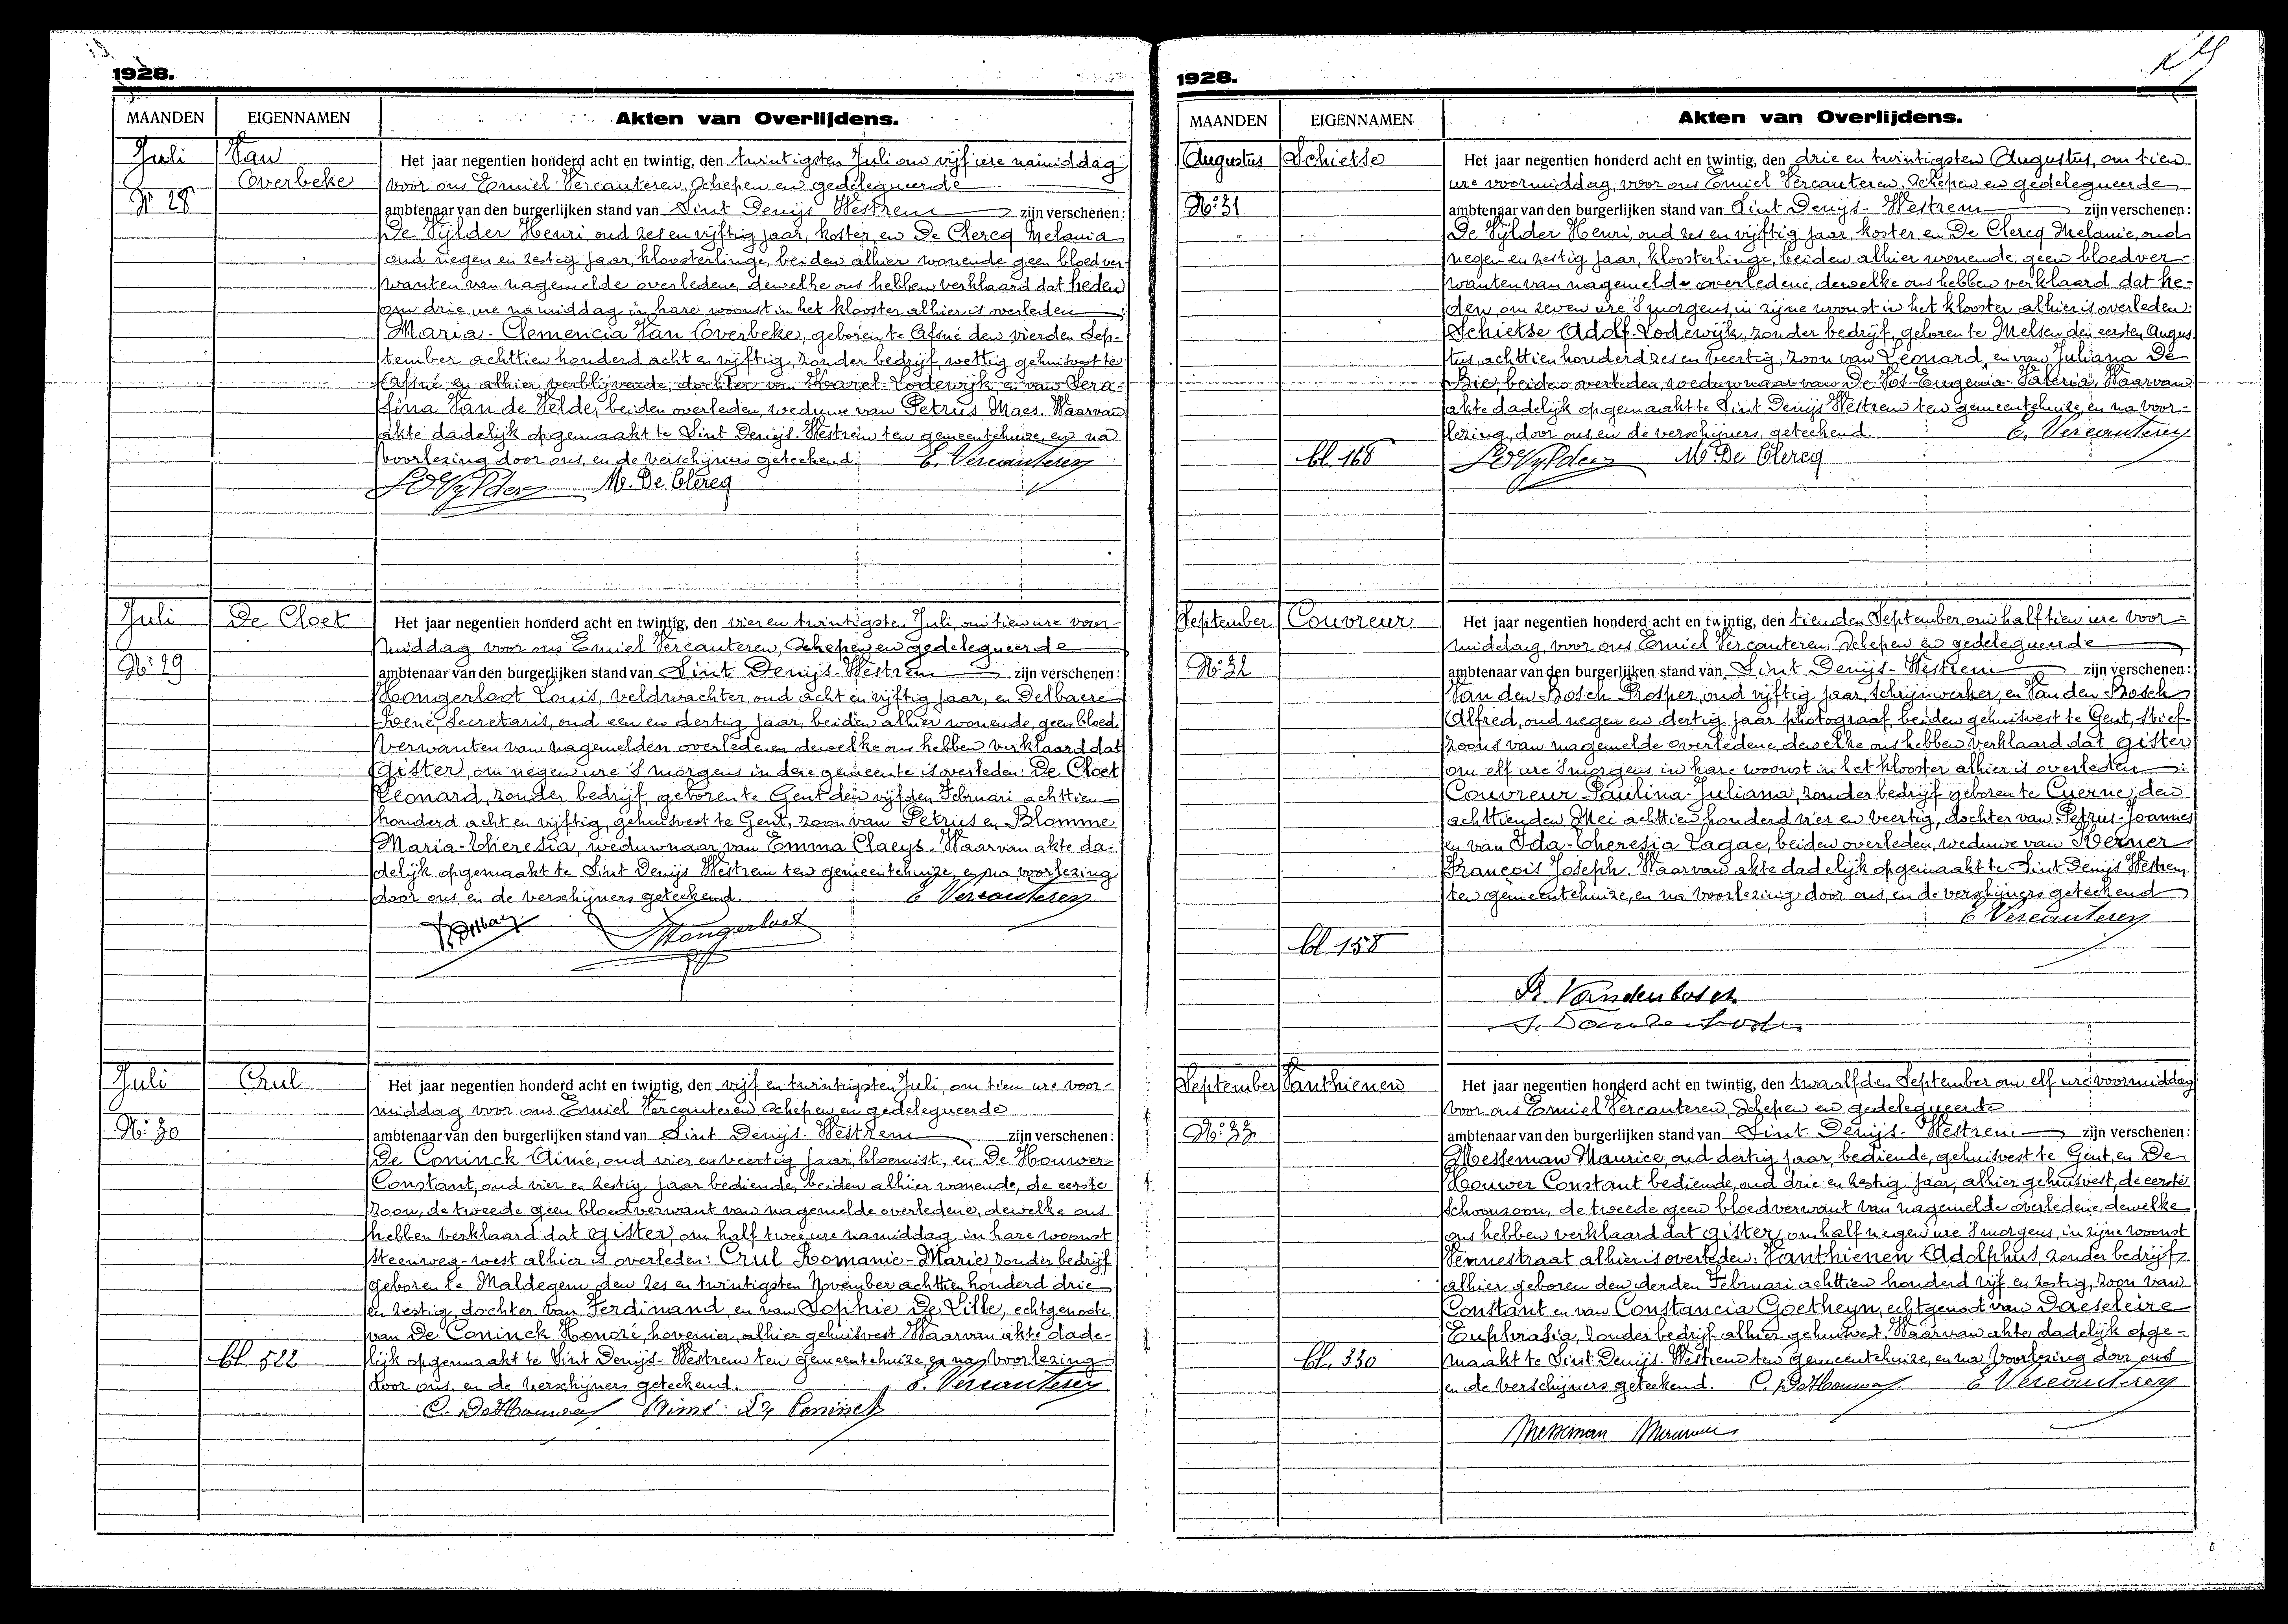 1928.
MAANDEN EIGENNAMEN Akten van Overlijdens.
Juli
Nr 28
Van
Overbeke
Het jaar negentien honderd acht en twintig, den twintigsten Juli om vijf ure namiddag
voor ons Emiel Vercauteren, Schepen en gedelegueerde
ambtenaar van den burgerlijken stand van Sint Denijs Westrem zijn verschenen:
De Vylder Henri, oud zes en vijftig jaar, koster, en De Clercq Melania
oud negen en zestig jaar, kloosterlinge, beiden alhier wonende geen bloedver-
wanten van nagemelde overledene, dewelke ons hebben verklaard dat heden
om drie ure namiddag in hare woonst in het klooster alhier is overleden:
Maria-Clemencia Van Overbeke, geboren te Afsné den vierden Sep-
tember achttien honderd acht en vijftig, zonder bedrijf, wettig gehuisvest te
Afsné, en alhier verblijvende, dochter van Karel-Lodewijk en van Sera-
fina Van de Velde, beiden overleden, weduwe van Petrus Maes. Waarvan
akte dadelijk opgemaakt te Sint Denijs-Westrem ten gemeentehuize, en na
voorlezing door ons, en de verschijners geteekend. E. Vercauteren
De Vylder M. De Clercq
Juli
No 29
De Cloet
Het jaar negentien honderd acht en twintig, den vier en twintigsten Juli, om tien ure voor-
middag voor ons Emiel Vercauteren, Schepen en gedelegueerde
ambtenaar van den burgerlijken stand van Sint Denijs-Westrem zijn verschenen:
Hongerloot Louis, veldwachter, oud acht en vijftig jaar, en Delbaere
René, Secretaris, oud een en dertig jaar, beiden alhier wonende, geen bloed
verwanten van nagemelden overledenen dewelke ons hebben verklaard dat
gister, om negen ure 's morgens in deze gemeente is overleden: De Cloet
Leonard, zonder bedrijf, geboren te Gent den vijfden Februari achttien
honderd acht en vijftig, gehuisvest te Gent, zoon van Petrus en Blomme
Maria-Theresia, weduwnaar van Emma Claeys. Waarvan akte da-
delijk opgemaakt te Sint Denijs Westrem ten gemeentehuize, en na voorlezing
door ons, en de verschijners geteekend. E Vercauteren
Hongerloot
Juli
No 30
Crul
bl. 522
Het jaar negentien honderd acht en twintig, den vijf en twintigsten Juli, om tien ure voor-
middag voor ons Emiel Vercauteren, Schepen en gedelegueerde
ambtenaar van den burgerlijken stand van Sint Denijs-Westrem zijn verschenen:
De Coninck Aimé, oud vier en veertig jaar, bloemist, en De Houwer
Constant, oud vier en zestig jaar bediende, beiden alhier wonende, de eerste
zoon, de tweede geen bloedverwant van nagemelde overledene, dewelke ons
hebben verklaard dat gister, om half twee ure namiddag in hare woonst
Steenweg-west alhier is overleden: Crul Romanie-Marie, zonder bedrijf
geboren te Maldegem den zes en twintigsten November achttien honderd drie
en zestig, dochter van Ferdinand, en van Sophie De Lille, echtgenoote
van De Coninck Honoré, hovenier, alhier gehuisvest. Waarvan akte dade-
lijk opgemaakt te Sint Denijs-Westrem ten gemeentehuize, en na voorlezing
door ons, en de verschijners geteekend. E. Vercauteren
C. De Houwer Aimé De Coninck
1928.
MAANDEN EIGENNAMEN Akten van Overlijdens.
Augustus
No 31
Schietse
bl. 168
Het jaar negentien honderd acht en twintig, den drie en twintigsten Augustus, om tien
ure voormiddag, voor ons Emiel Vercauteren, Schepen en gedelegueerde
ambtenaar van den burgerlijken stand van Sint Denijs-Westrem zijn verschenen:
De Vylder Henri, oud zes en vijftig jaar, koster, en De Clercq Melanie, oud
negen en zestig jaar, kloosterlinge, beiden alhier wonende, geen bloedver-
wanten van nagemelde overledene, dewelke ons hebben verklaard dat he-
den, om zeven ure 's morgens, in zijne woonst in het klooster alhier is overleden:
Schietse Adolf-Lodewijk, zonder bedrijf, geboren te Melsen den eersten Augus
tus, achttien honderd zes en veertig, zoon van Léonard, en van Juliana De
Bie, beiden overleden, weduwnaar van De Vos Eugenia-Valeria. Waarvan
akte dadelijk opgemaakt te Sint Denijs Westrem ten gemeentehuize, en na voor-
lezing, door ons, en de verschijners geteekend. E. Vercauteren
De Vylder M De Clercq
September
No 32
Couvreur
bl. 158
Het jaar negentien honderd acht en twintig, den tienden September om half tien ure voor-
middag, voor ons Emiel Vercauteren, Schepen en gedelegueerde
ambtenaar van den burgerlijken stand van Sint Denijs-Westrem zijn verschenen:
Van den Bosch Prosper, oud vijftig jaar, schrijnwerker, en Van den Bosch
Alfred, oud negen en dertig jaar photograaf, beiden gehuisvest te Gent, stief-
zoons van nagemelde overledene, dewelke ons hebben verklaard dat gister
om elf ure 's morgens in hare woonst in het klooster alhier is overleden:
Couvreur Paulina-Juliana, zonder bedrijf geboren te Cuerne, den
achttienden Mei achttien honderd vier en veertig, dochter van Petrus-Joannes
en van Ida-Theresia Lagae, beiden overleden, weduwe van Kerner
François Joseph. Waarvan akte dadelijk opgemaakt te Sint Denijs Westrem
ten gemeentehuize, en na voorlezing door ons, en de verschijners geteekend
E Vercauteren
Pr. Vandenbosch
A. Vandenbosch
September
No 33
Vanthienen
bl. 330
Het jaar negentien honderd acht en twintig, den twaalfden September om elf ure voormiddag
voor ons Emiel Vercauteren, Schepen en gedelegueerde
ambtenaar van den burgerlijken stand van Sint Denijs-Westrem zijn verschenen:
Messeman Maurice, oud dertig jaar, bediende, gehuisvest te Gent, en De
Houwer Constant bediende, oud drie en zestig jaar, alhier gehuisvest, de eerste
schoonzoon, de tweede geen bloedverwant van nagemelde overledene, dewelke
ons hebben verklaard dat gister, om half negen ure 's morgens, in zijne woonst
Vennestraat alhier is overleden: Vanthienen Adolphus, zonder bedrijf
alhier geboren den derden Februari achttien honderd vijf en zestig, zoon van
Constant en van Constancia Goetheyn, echtgenoot van Daeseleire
Euphrasia, zonder bedrijf alhier gehuisvest. Waarvan akte dadelijk opge-
maakt te Sint Denijs-Westrem ten gemeentehuize, en na voorlezing door ons
en de verschijners geteekend. C. De Houwer E Vercauteren
Messeman Maurice